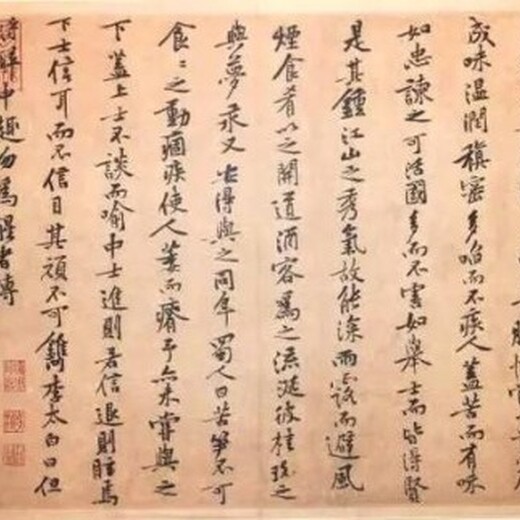 成味温潤縝密多啗而不疾人蓋苦而有味
如忠諫之可活國多而不害如舉士而皆得賢
是其鍾江山之秀氣故能深雨露而避風
煙食肴以之開道酒客為之流涎彼桂玫之
與夢永又安得與之同年蜀人曰苦筍不可
食〻之動痼疾使人萎而瘠予亦未嘗與之
下蓋上士不談而喻中士進則若信退則眩焉
下士信耳而不信目其頑不可鐫李太白曰但
得醉中趣勿為醒者傳